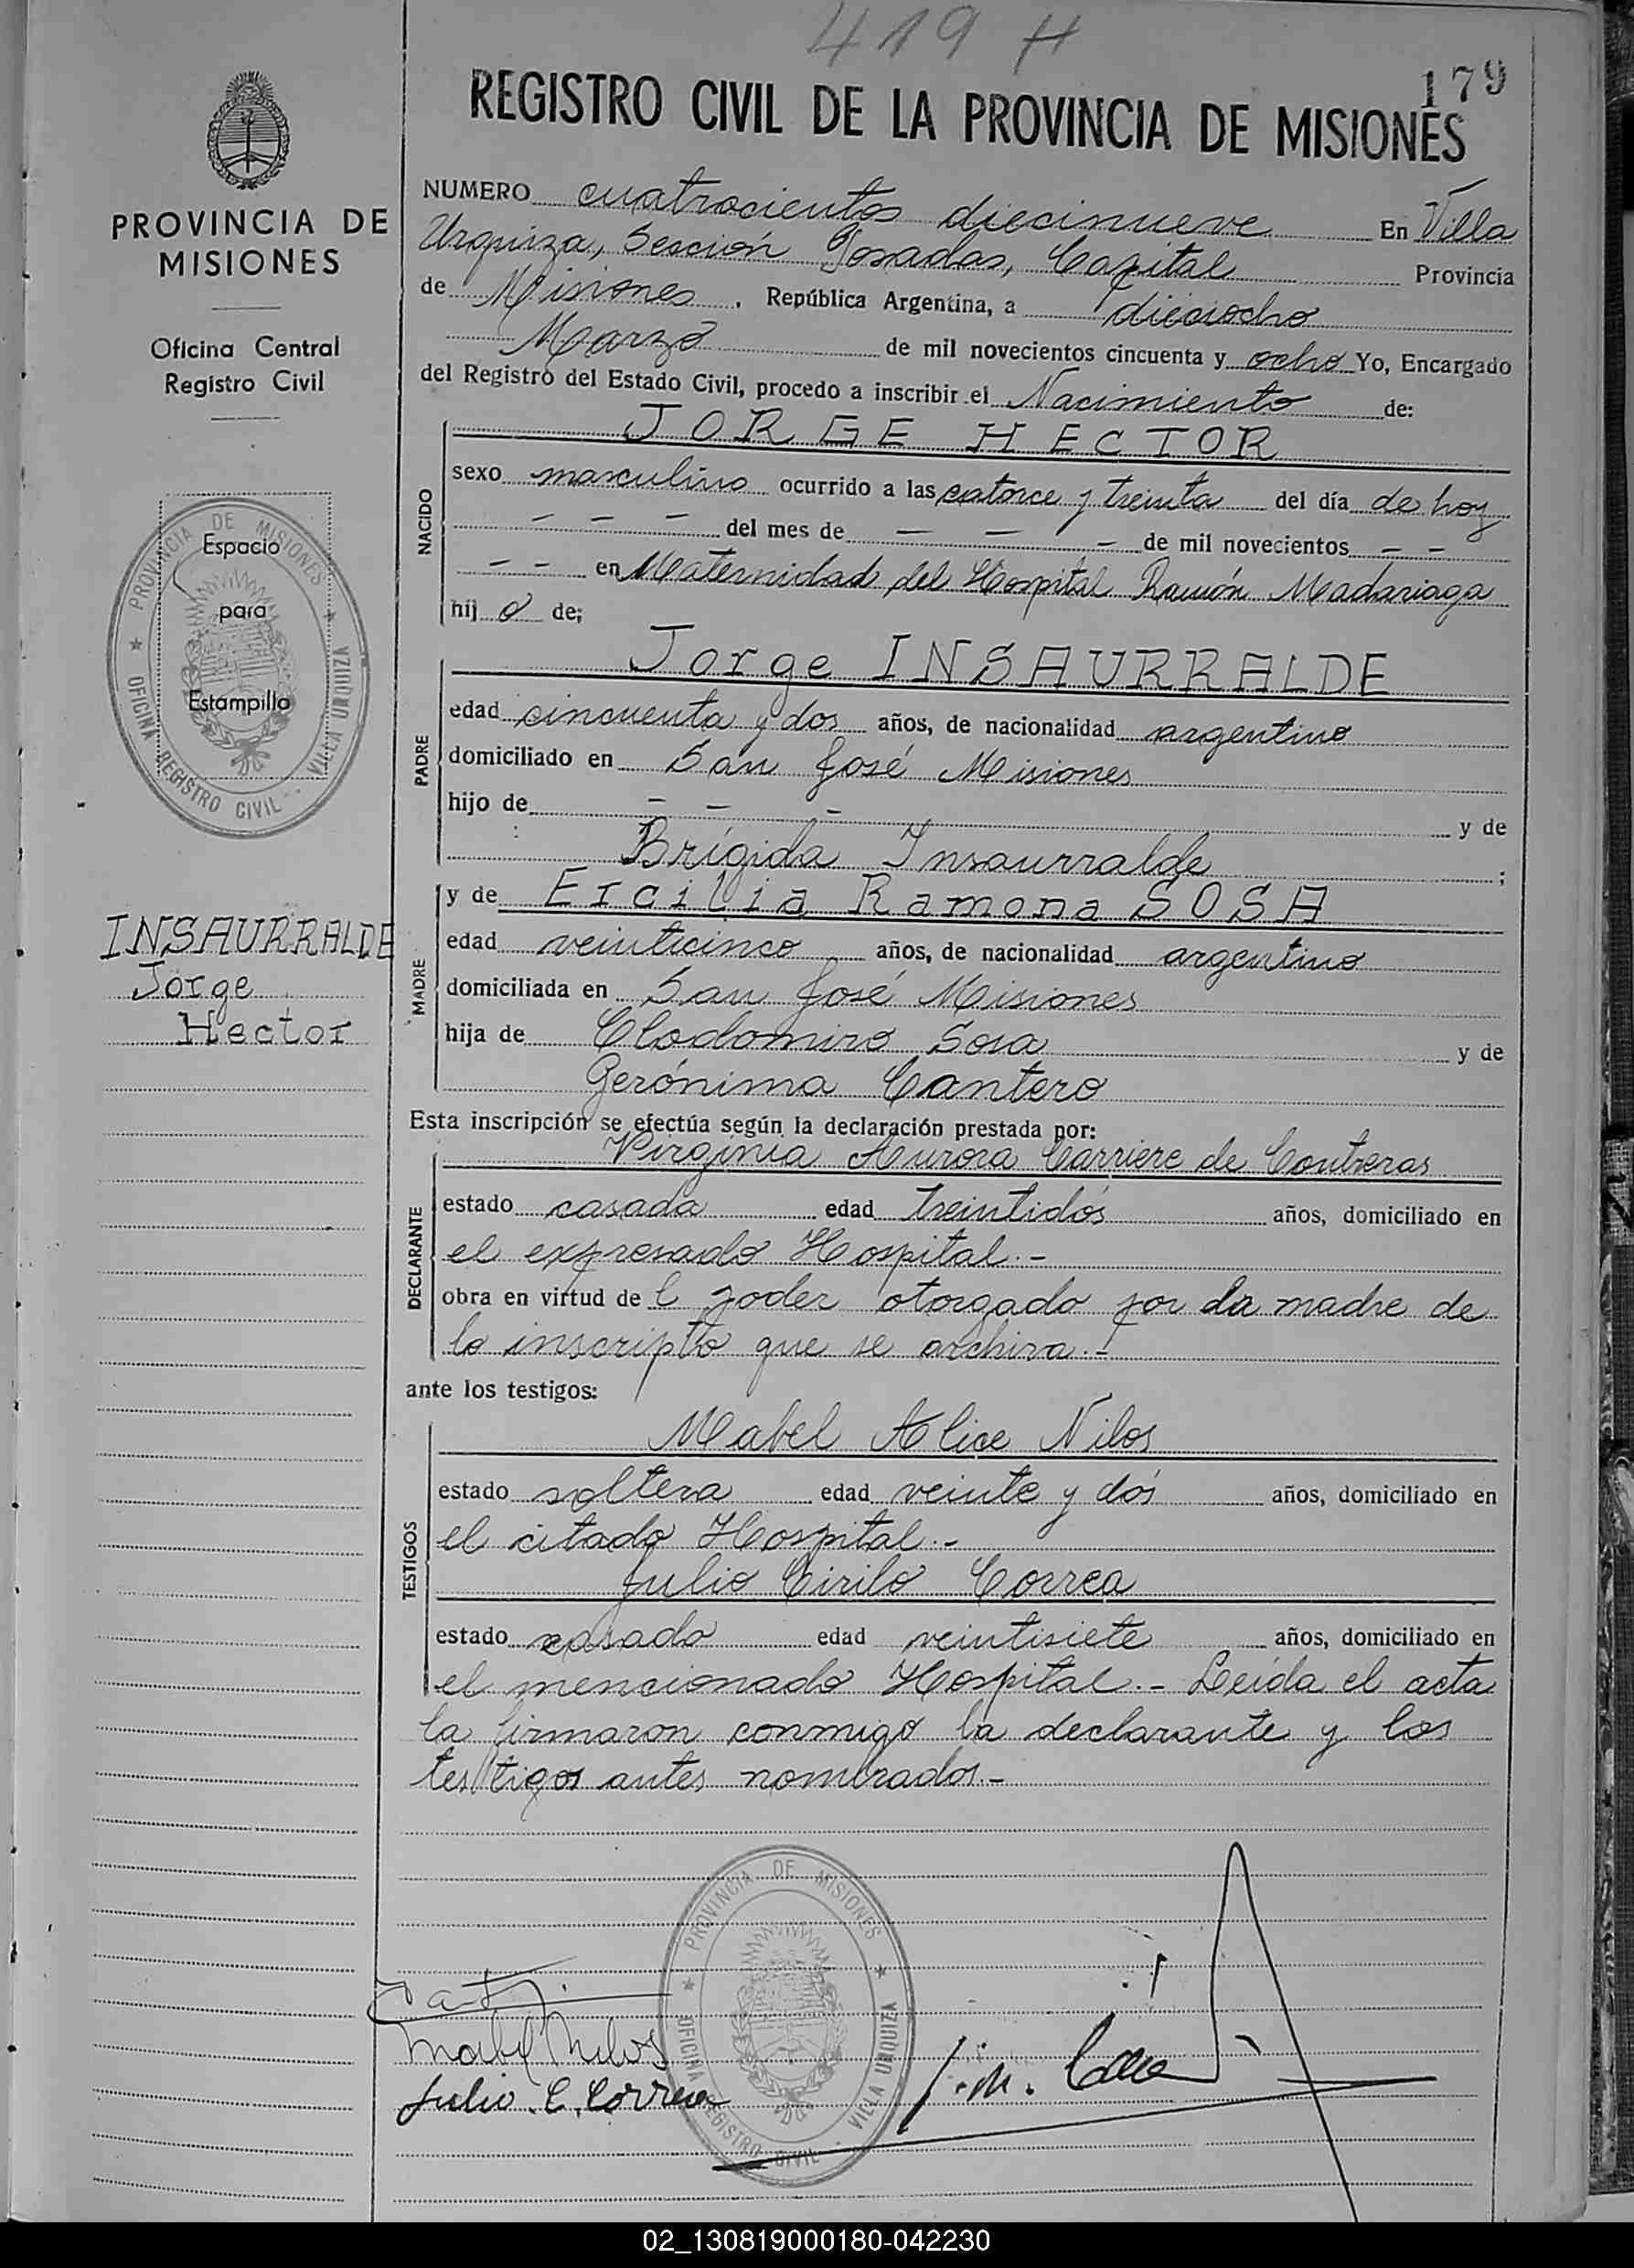 419 H
179
REGISTRO CIVIL DE LA PROVINCIA DE MISIONES
PROVINCIA DE
MISIONES
Oficina Central
Registro Civil
PROVINCIA DE MISIONES
OFICINA REGISTRO CIVIL - VILLA URQUIZA
Espacio
para
Estampilla
INSAURRALDE
Jorge
Hector
NUMERO cuatrocientos diecinueve En Villa
Urquiza, Sección Posadas, Capital Provincia
de Misiones. República Argentina, a dieciocho
Marzo de mil novecientos cincuenta y ocho Yo, Encargado
del Registro del Estado Civil, procedo a inscribir el Nacimiento de:
NACIDO
JORGE HECTOR
sexo masculino ocurrido a las catorce y treinta del día de hoy
- - - del mes de - - - de mil novecientos - -
- - en Maternidad del Hospital Ramón Madariaga
hij o de;
PADRE
Jorge INSAURRALDE
edad cincuenta y dos años, de nacionalidad argentino
domiciliado en San José Misiones
hijo de - - - y de
Brígida Insaurralde ;
MADRE
y de Ercilia Ramona SOSA
edad veinticinco años, de nacionalidad argentino
domiciliada en San José Misiones
hija de Clodomiro Sosa y de
Gerónima Cantero
Esta inscripción se efectúa según la declaración prestada por:
DECLARANTE
Virginia Aurora Carriere de Contreras
estado casada edad treintidós años, domiciliado en
el expresado Hospital.-
obra en virtud de l poder otorgado por la madre de
lo inscripto que se archiva.-
ante los testigos:
TESTIGOS
Mabel Alice Nilos
estado soltera edad veinte y dós años, domiciliado en
el citado Hospital.-
Julio Cirilo Correa
estado casado edad veintisiete años, domiciliado en
el mencionado Hospital.- Leída el acta
la firmaron conmigo la declarante y los
testigos antes nombrados.-
PROVINCIA DE MISIONES
OFICINA REGISTRO CIVIL - VILLA URQUIZA
Mabel Nilos
Julio. C. Correa
02_130819000180-042230